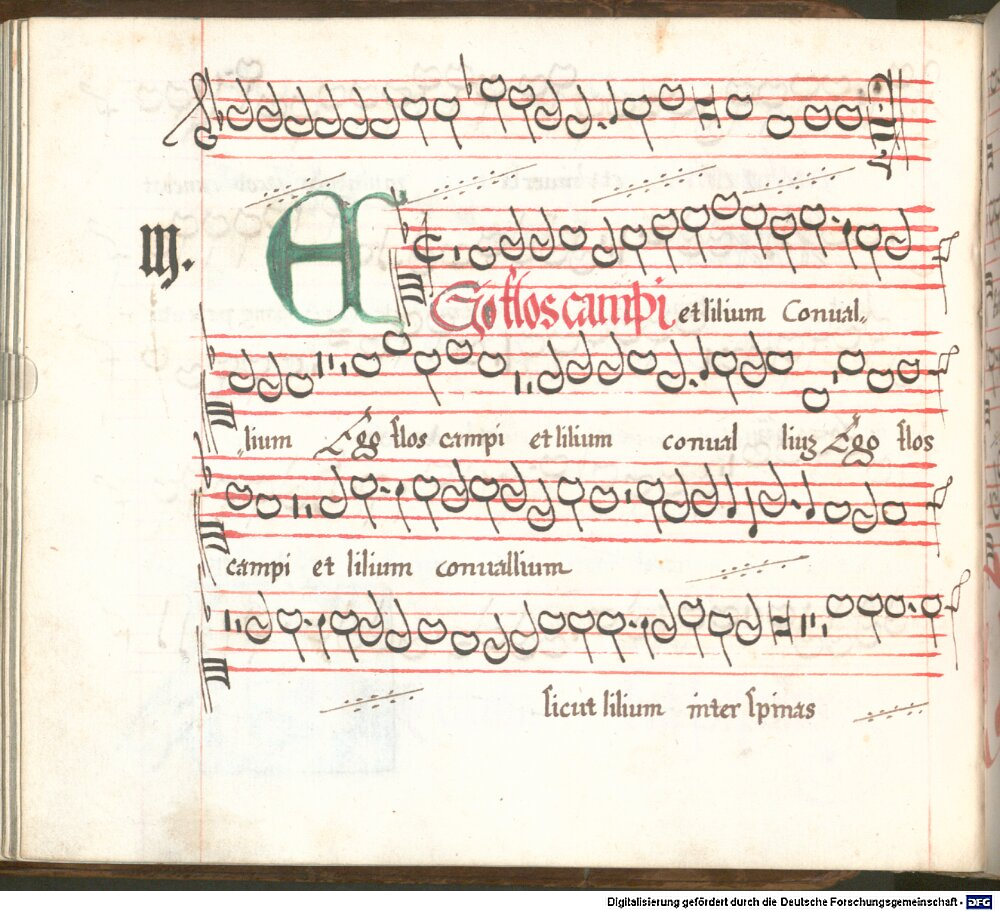 III.
Ego flos campi et lilium Conual-
lium Ego flos campi et lilium conual liuȝ Ego flos
campi et lilium conuallium
sicut lilium inter spinas
Digitalisierung gefördert durch die Deutsche Forschungsgemeinschaft - DFG